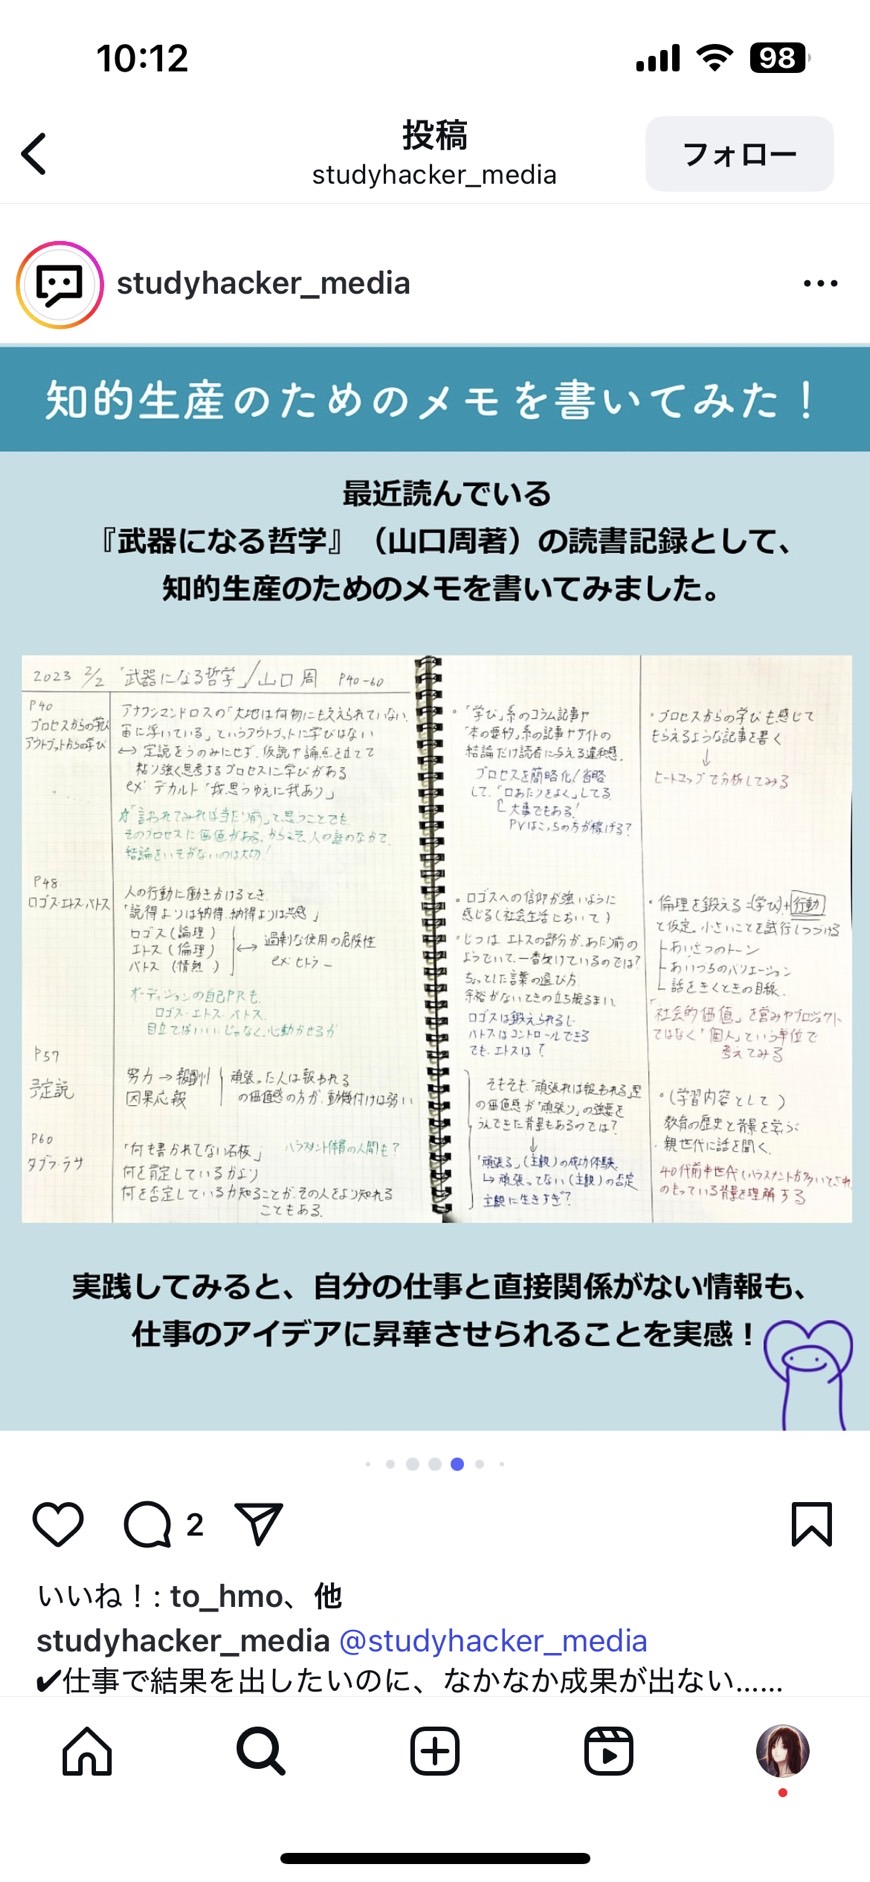 10:12
98
投稿
studyhacker_media
フォロー
studyhacker_media
知的生産のためのメモを書いてみた！
最近読んでいる
『武器になる哲学』（山口周著）の読書記録として、
知的生産のためのメモを書いてみました。
2023 2/2 「武器になる哲学」/山口周 P40-60
P40
プロセスからの学び
アウトプットからの学び
アナクシマンドロスの「大地は何物にも支えられていない。
宙に浮いている」というアウトプットに学びはない
↔ 定説をうのみにせず、仮説や論点を立てて
粘り強く思考するプロセスに学びがある
ex デカルト「我思うゆえに我あり」
「言われてみれば当たり前」と思うことでも
そのプロセスに価値がある。からこそ、人の話のなかで、
結論をいそがないのは大切!
P48
ロゴス・エトス・パトス
人の行動に働きかけるとき、
「説得よりは納得、納得よりは共感」
ロゴス(論理)
エトス(倫理)
パトス(情熱)
↔ 過剰な使用の危険性
ex ヒトラー
オーディションの自己PRも、
ロゴス・エトス・パトス
目立てばいいじゃなく、心動かせるか
P57
予定説
努力→報酬
因果応報
頑張った人は報われる
の価値感の方が、動機付けは弱い
P60
タブラ・ラサ
「何も書かれてない石板」
ハラスメント体質の人間も?
何を肯定しているかより
何を否定しているか知ることが、その人をより知れる
こともある。
・「学び」系のコラム記事や
「本の要約」系の記事やサイトの
結論だけ読者に与える違和感。
プロセスを簡略化/省略
して、「口あたりをよく」してる
大事でもある!
PVはこっちの方が稼げる?
・ロゴスへの信仰が強いように
感じる(社会生活において)
・じつは エトスの部分が、あたり前の
ようでいて、一番欠けているのでは?
ちょっとした言葉の選び方
余裕がないときの立ち振るまい
ロゴスは鍛えられるし
パトスはコントロールできる
でも、エトスは?
そもそも「頑張れば報われる」型
の価値感が「頑張り」の強要を
うんできた背景もあるのでは?
↓
「頑張る」(主観)の成功体験、
↳頑張ってない(主観)の否定
主観に生きすぎ?
・プロセスからの学びも感じて
もらえるような記事を書く
↓
ヒートマップで分析してみる
・倫理を鍛える=(学び)+行動
と仮定。小さいことを試行しつづける
あいさつのトーン
あいづちのバリエーション
話をきくときの目線。
「社会的価値」を営みやプロジェクト
ではなく「個人」という単位で
考えてみる
・(学習内容として)
教育の歴史と背景を学ぶ
・親世代に話を聞く、
のもっている背景を理解する
実践してみると、自分の仕事と直接関係がない情報も、
仕事のアイデアに昇華させられることを実感！
2
いいね！: to_hmo、他
studyhacker_media @studyhacker_media
✔仕事で結果を出したいのに、なかなか成果が出ない……